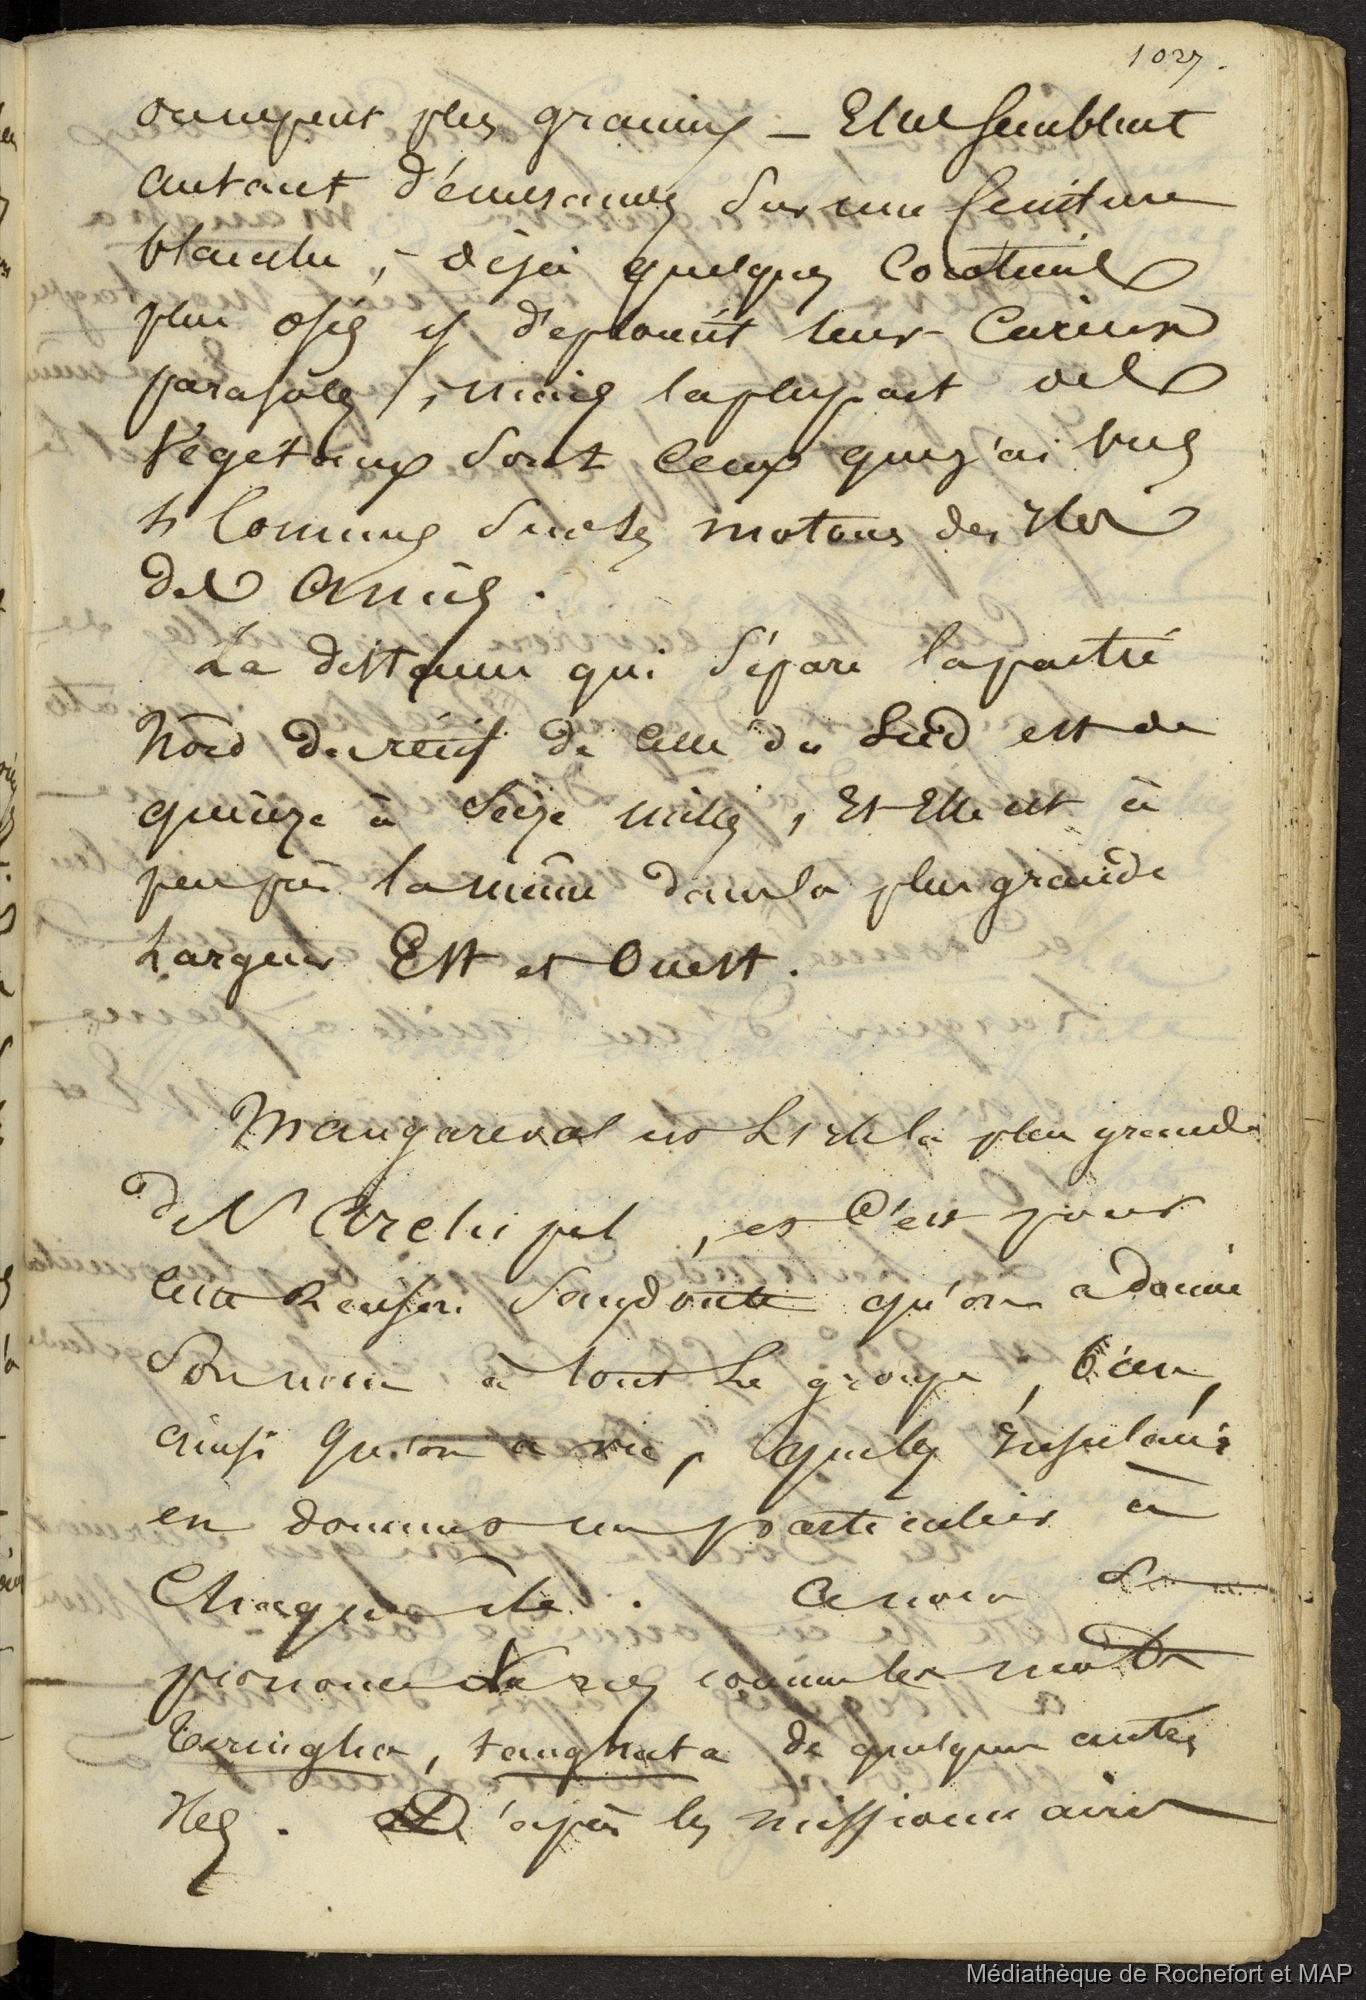 1027.
plus graminés — Elles semblent
autant d'émeraudes sur une ceinture
blanche ; – déjà quelques cocotiers
plus osés y déploient leurs curieux
parasols, mais la plupart des
végétaux sont ceux que j'ai vus
si communs sur les motous des iles
des Amis.
La distance qui sépare la partie
Nord du récif de celle du Sud est de
quinze à seize milles, Et Elle est à
peu près la même dans la plus grande
Largeur Est et Ouest.
Mangareva est L'Ile la plus grande
de L'Archipel, et c'est pour
cette Raison sans doute qu'on a donné
son nom à tout Le groupe, bien,
ainsi qu'on a vu, que les Insulaires
en donnent un particulier à
Chaque île. Ce nom se
prononce comme les mots
tangata de quelques autres
Iles. D'après les missionnaires
Médiathèque de Rochefort et MAP